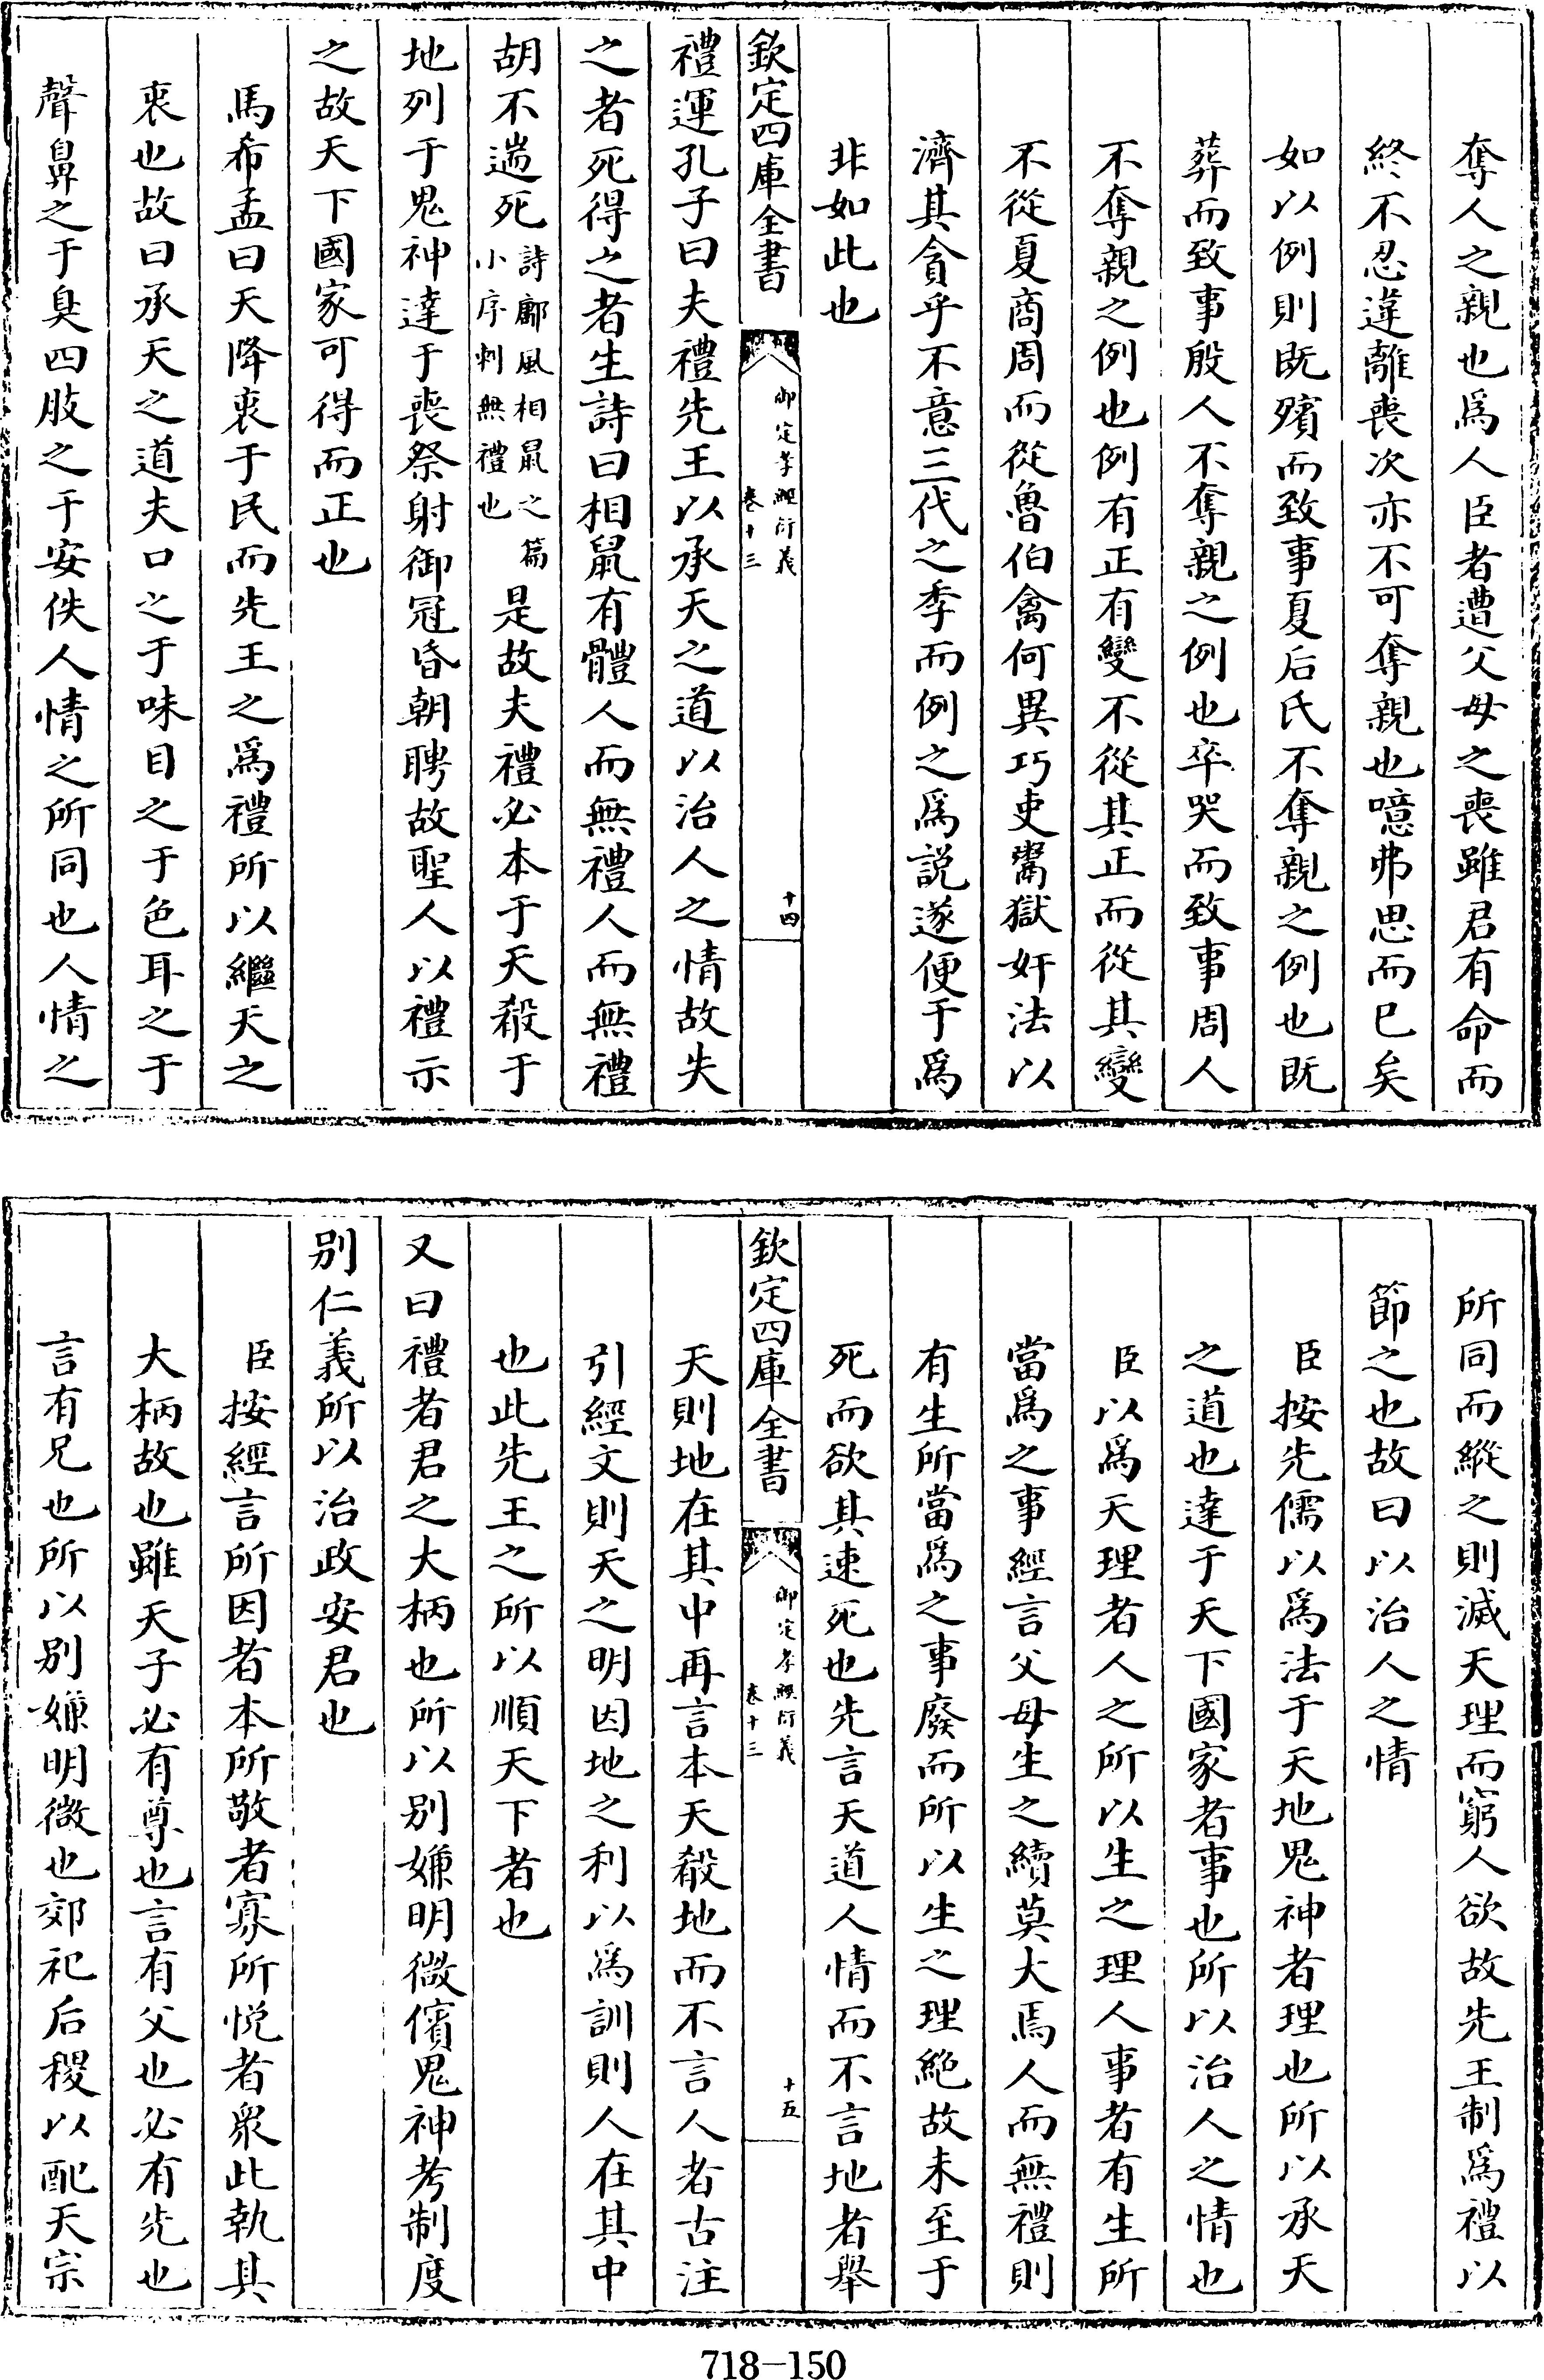 奪人之親也爲人臣者遭父母之喪雖君有命而
終不忍違離喪次亦不可奪親也噫弗思而已矣
如以例則既殯而致事夏后氏不奪親之例也既
葬而致事殷人不奪親之例也卒哭而致事周人
不奪親之例也例有正有變不從其正而從其變
不從夏商周而從魯伯禽何異巧吏鬻獄奸法以
濟其貪乎不意三代之季而例之爲説遂便于爲
非如此也
欽定四庫全書
御定孝經衍義
卷十三
十四
禮運孔子曰夫禮先王以承天之道以治人之情故失
之者死得之者生詩曰相鼠有體人而無禮人而無禮
胡不遄死
詩鄘風相鼠之篇
小序刺無禮也
是故夫禮必本于天殽于
地列于鬼神達于喪祭射御冠昏朝聘故聖人以禮示
之故天下國家可得而正也
馬希孟曰天降衷于民而先王之爲禮所以繼天之
衷也故曰承天之道夫口之于味目之于色耳之于
聲鼻之于臭四肢之于安佚人情之所同也人情之
所同而縱之則滅天理而窮人欲故先王制爲禮以
節之也故曰以治人之情
臣按先儒以爲法于天地鬼神者理也所以承天
之道也達于天下國家者事也所以治人之情也
臣以爲天理者人之所以生之理人事者有生所
當爲之事經言父母生之續莫大焉人而無禮則
有生所當爲之事廢而所以生之理絶故未至于
死而欲其速死也先言天道人情而不言地者舉
欽定四庫全書
御定孝經衍義
卷十三
十五
天則地在其中再言本天殽地而不言人者古注
引經文則天之明因地之利以爲訓則人在其中
也此先王之所以順天下者也
又曰禮者君之大柄也所以别嫌明微儐鬼神考制度
别仁義所以治政安君也
臣按經言所因者本所敬者寡所悦者衆此執其
大柄故也雖天子必有尊也言有父也必有先也
言有兄也所以别嫌明微也郊祀后稷以配天宗
718-150